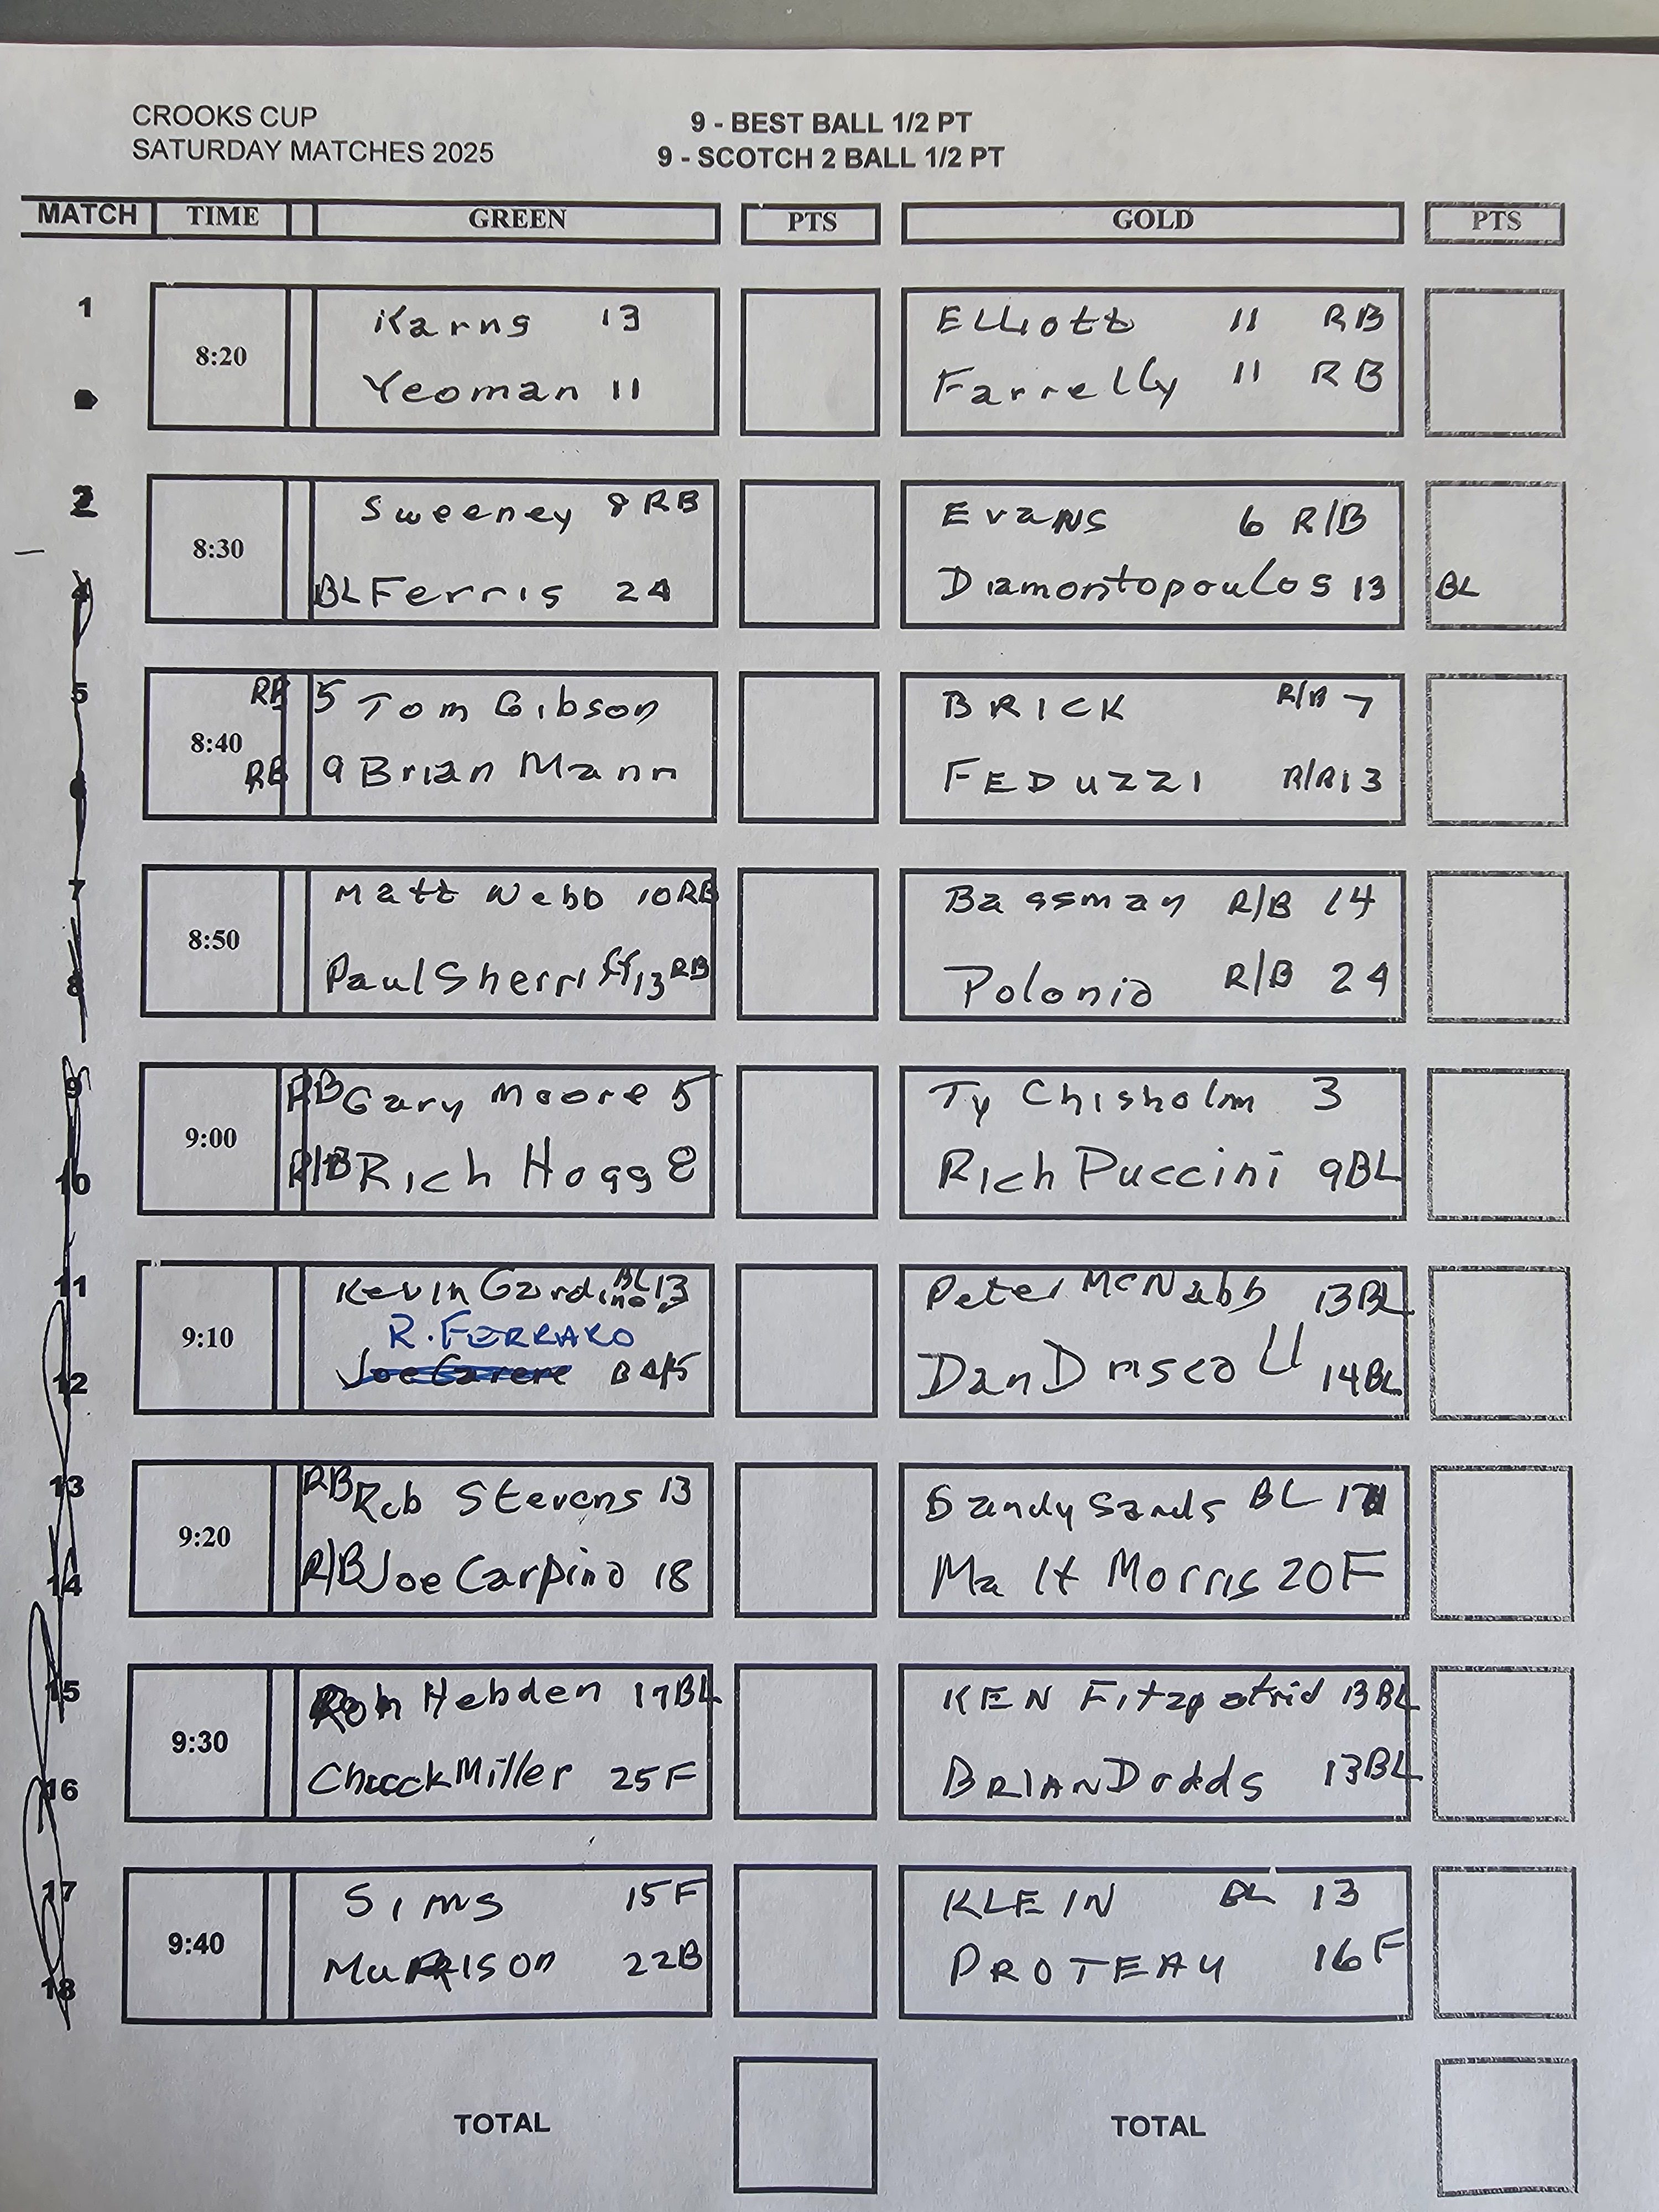 CROOKS CUP
SATURDAY MATCHES 2025
9 - BEST BALL 1/2 PT
9 - SCOTCH 2 BALL 1/2 PT
MATCH TIME GREEN PTS GOLD PTS
1
8:20
Karns 13
Yeoman 11
Elliott 11 RB
Farrelly 11 RB
2
8:30
Sweeney 8 RB
BL Ferris 24
Evans 6 R/B
Diamontopoulos 13 BL
4
5
8:40
RB 5 Tom Gibson
RB 9 Brian Mann
BRICK R/B 7
FEDUZZI R/B 13
6
7
8:50
Matt Webb 10 RB
Paul Sherriff 13 RB
Bassman R/B 14
Polonia R/B 24
8
9
9:00
RB Gary Moore 5
R/B Rich Hogg 8
Ty Chisholm 3
Rich Puccini 9 BL
10
11
9:10
Kevin Gardino BL 13
R. FERRARO
Peter McNabb 13 BL
Dan Driscoll 14 BL
12
13
9:20
RB Rob Stevens 13
R/B Joe Carpino 18
Sandy Sands BL
Matt Morris 20 F
14
15
9:30
Hebden 17 BL
Chuck Miller 25 F
KEN Fitzpatrick 13 BL
BRIAN Dodds 13 BL
16
17
9:40
Sims 15 F
Murrison 22 B
KLEIN BL 13
PROTEAU 16 F
18
TOTAL TOTAL